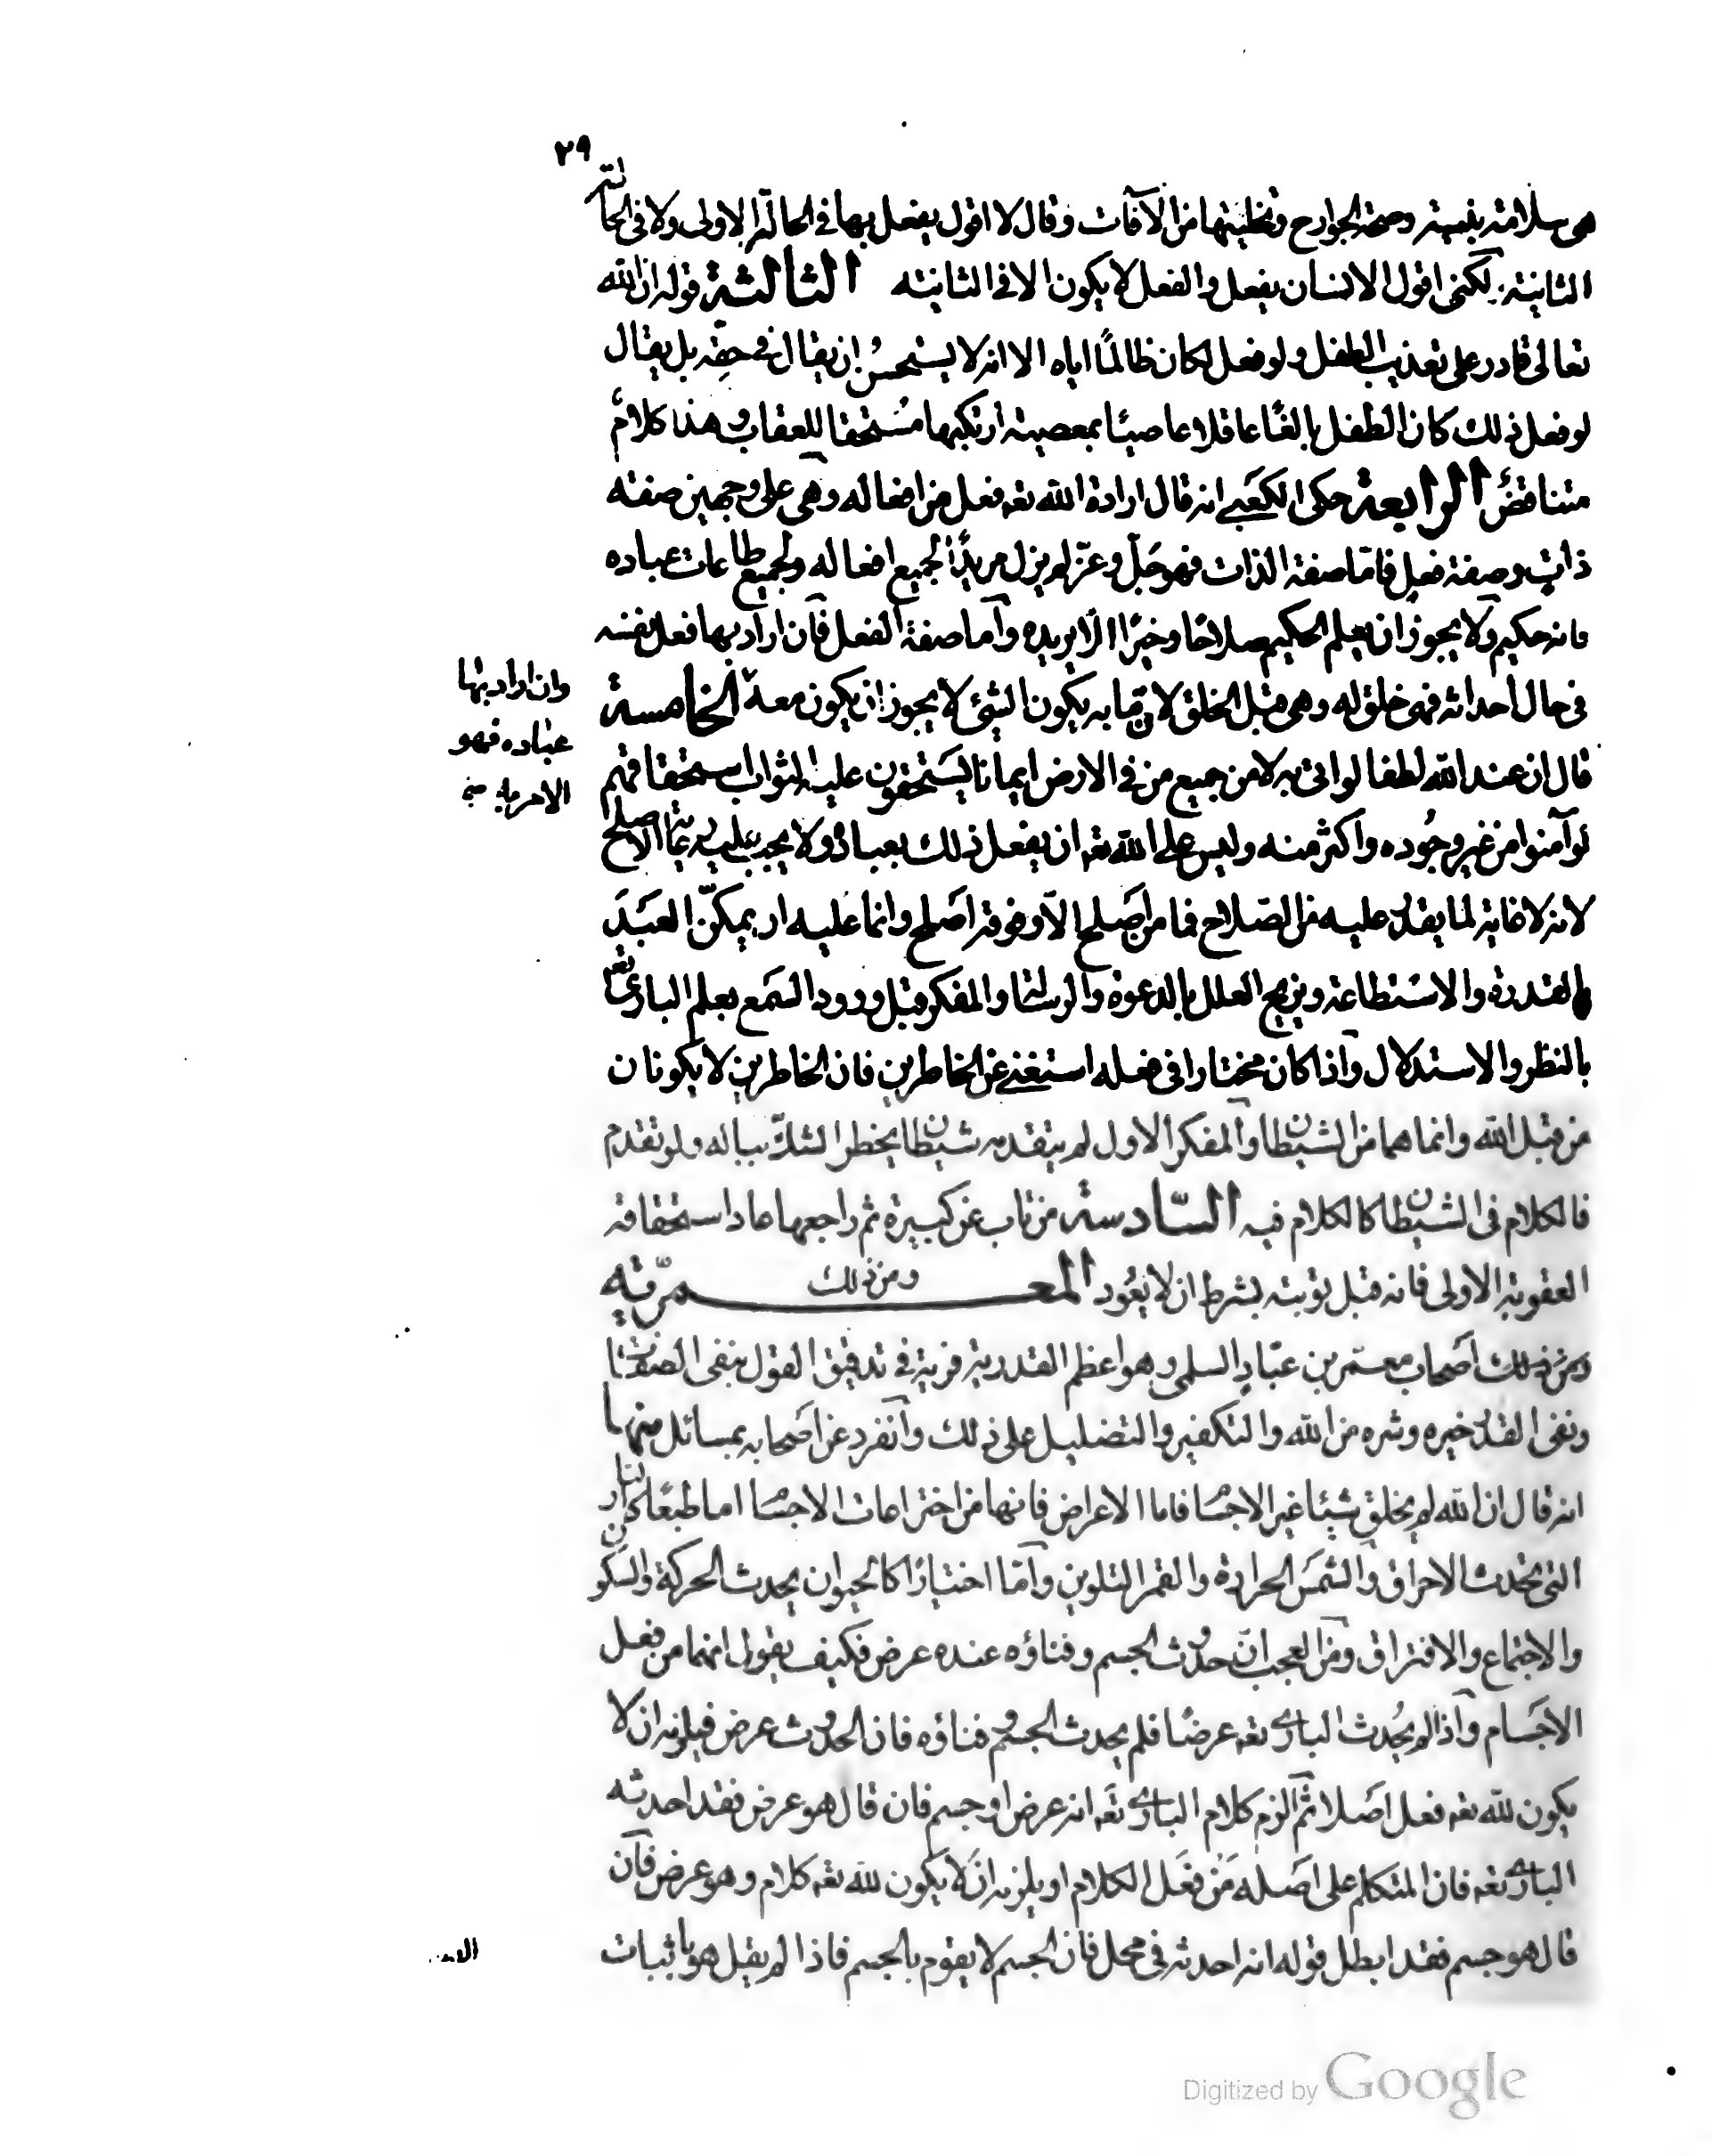 ٢٩
هى سلامة بنيته وصحة الجوارح وتخليتها من الآفات وقال لا اقول يفعل بها فى الحالة الاولى ولا فى الحالة
الثانية لكنى اقول الانسان يفعل والفعل لا يكون الا فى الثانيته الثالثة قوله ان الله
تعالى قادر على تعذيب الطفل ولو فعل لكان ظالمًا اياه الا انه لا يستحسُن ان يقال فى حقِه بل يقال
لو فعل ذلك كان الطفل بالغًا عاقلا عاصيًا بمعصية ارتكبها مُستحقا للعقاب وهذا كلامٌ
متناقضٌ الرابعة حكى الكعَبى انه قال ارادة الله تعه فعل من افعاله وهى على وجهين صفته
ذاتٍ وصفة فعلٍ فامّا صفة الذات فهو جَلّ وعزّ لم يزل مريدًا لجميع افعاله ولجميع طاعات عباده
فانه حكيم ولا يجوز ان يعلم الحكيم صلاحًا وخيرًا الّا يريده وأما صفة الفعل فان اراد بها فعل نفسه
فى حال احداثه فهى خلق له وهى قبل الخلق لان ما به يكون الشئ لا يجوز ان يكون معه الخامسة
وان اراد بها
عباده فهو
الامر به صح
قال ان عند الله لطفا لو اتى به لامن جميع من فى الارض ايمانا يسَتحقون عليه الثواب استحقاقهم
لو آمنوا من غير وجُوده واكثر منه وليس على الله تعه ان يفعل ذلك بعباده ولا يجب عليه رعاية الاصلح
لانه لا غاية لما يقدر عليه من الصّلاح فما من اصَلح الّا وفوقه اصَلح وانما عَليه ان يمكّن العبَدَ
بالقدرة والاستطاعة ويزيح العلل بالدعوة والرسالة والمفكر قبل ورود السَمع يعلم البارئ تعه
بالنظر والاستدلال واذا كان مختارا فى فعله استغنى عن الخاطرين فان الخاطرين لا يكونان
من قبل الله وانما هما من الشيطان والمفكر الاول لم يتقدمه شيطان يخطر الشكّ بباله ولو تقدم
فالكلام فى الشيطان كالكلام فيه السّادسة من تاب عن كبيرة ثم راجعها عاد استحقاقه
العقوبة الاولى فانه قبل توبته بشرط ان لا يعُود ومن ذلك المعمرّيه
ومن ذلك اصَحاب معمّر بن عبّادٍ السلمى وهو اعظم القدرية فرية فى تدقيق القول بنفى الصفات
ونفى القدر خيره وشره من الله والتكفير والتضليل على ذلك وانفرد عن اصَحابه بمسائل منها
انه قال ان الله لم يخلق شيئا غير الاجسام فاما الاعراض فانها من اختراعات الاجسام اما طبعًا كالنار
التى تحدث الاحراق والشمسَ الحرارة والقمر التلوين وأمّا اختيارًا كالحيوان يحدث الحركة والسَكون
والاجتماع والافتراق ومن العجب انّ حدوث الجسم وفناؤه عنده عرض فكيف يقول انهما من فعل
الاجسَام واذا لم يُحدث البارئ تعه عرضًا فلم يحدث الجسم وفناؤه فان الحدوث عرض فيلزمه ان لا
يكون لله تعه فعل اصَلا ثم الزم كلام البارئ تعَه انه عرض او جسم فان قال هو عرض فقد احدثه
البارئ تعه فان المتكلم على اصَله مَن فعَل الكلام او يلزمه ان لا يكون لله تعه كلام وهو عرض فان
قال هو جسم فقد ابطل قوله انه احدثه فى محل فان الجسم لا يقوم بالجسم فاذا لم يقل هو باثبات
Digitized by Google